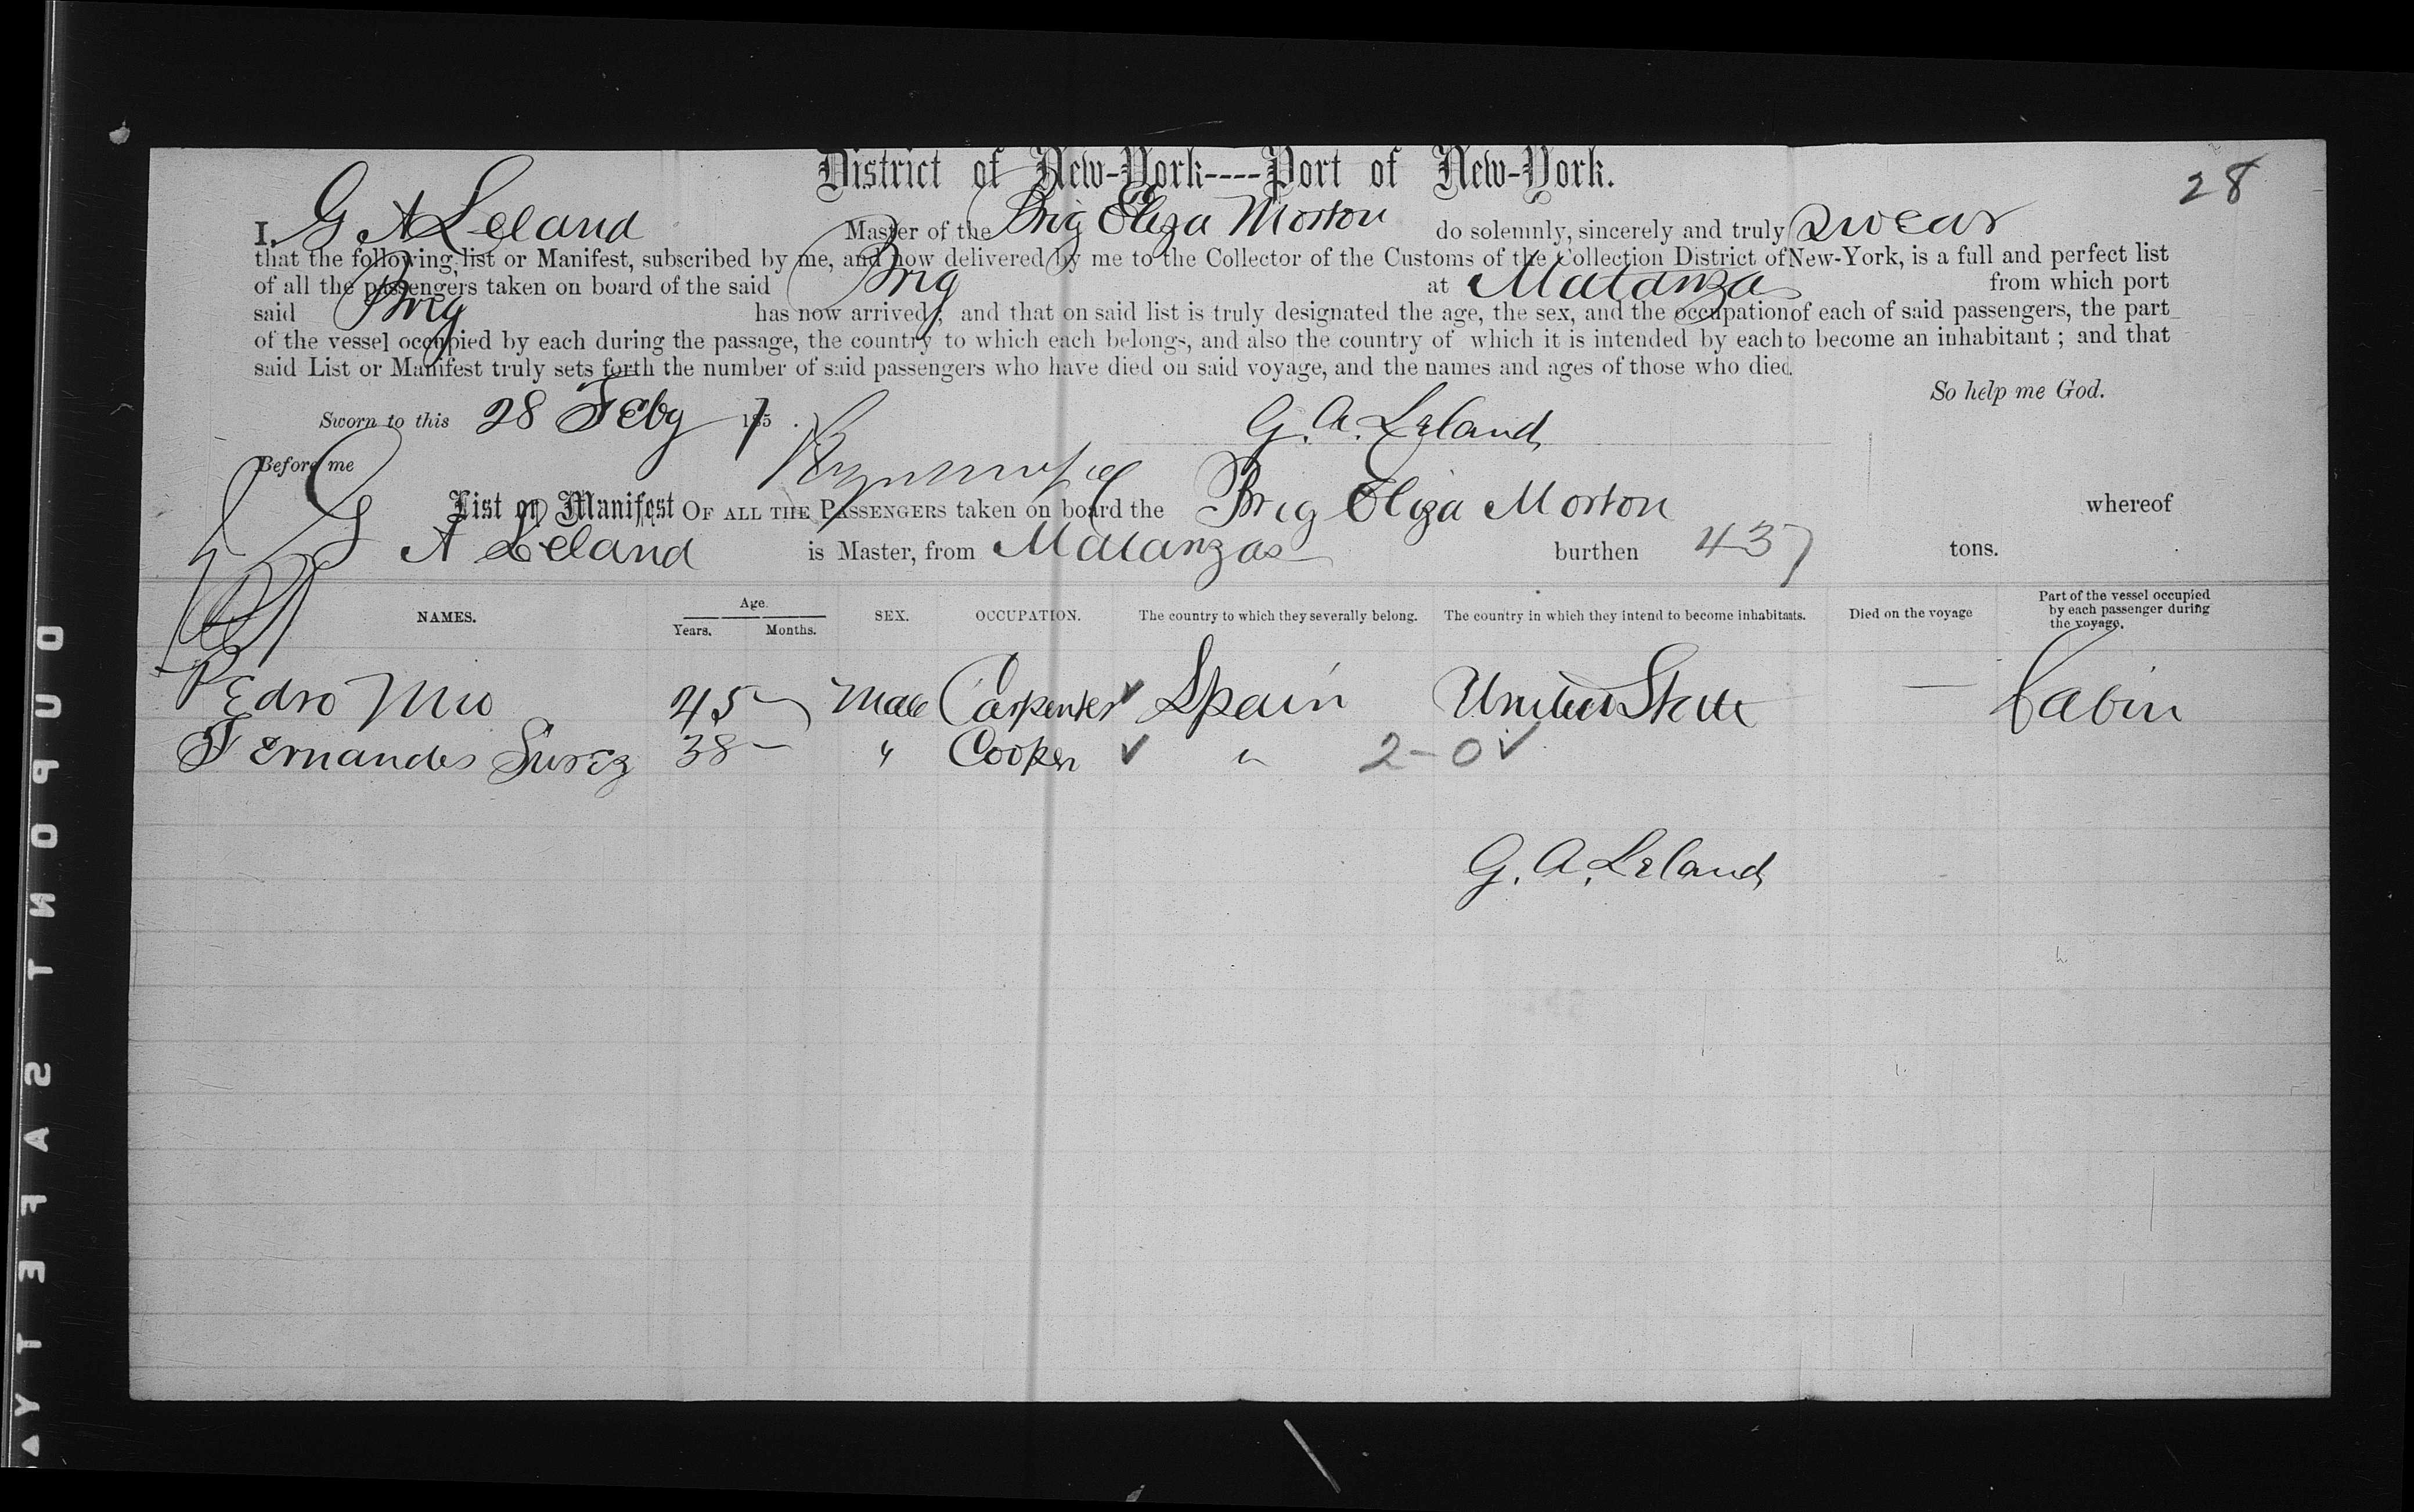 District of New-York----Port of New-York.
28
I, G A Leland Master of the Brig Eliza Morton do solemnly, sincerely and truly swear
that the following list or Manifest, subscribed by me, and now delivered by me to the Collector of the Customs of the Collection District of New-York, is a full and perfect list
of all the passengers taken on board of the said Brig at Matanzas from which port
said Brig has now arrived; and that on said list is truly designated the age, the sex, and the occupation of each of said passengers, the part
of the vessel occupied by each during the passage, the country to which each belongs, and also the country of which it is intended by each to become an inhabitant; and that
said List or Manifest truly sets forth the number of said passengers who have died on said voyage, and the names and ages of those who died.
So help me God.
Sworn to this 28 Feby 18 G. A. Leland
Before me
List or Manifest OF ALL THE PASSENGERS taken on board the Brig Eliza Morton whereof
G A Leland is Master, from Matanzas burthen 437 tons.
NAMES. Age. Years. Months. SEX. OCCUPATION. The country to which they severally belong. The country in which they intend to become inhabitants. Died on the voyage Part of the vessel occupied by each passenger during the voyage.
Pedro Mio 45 Male Carpenter Spain United State — Cabin
Fernandes Surez 38 – " Cooper " 2-0
G. A. Leland
DUPONT SAFETY